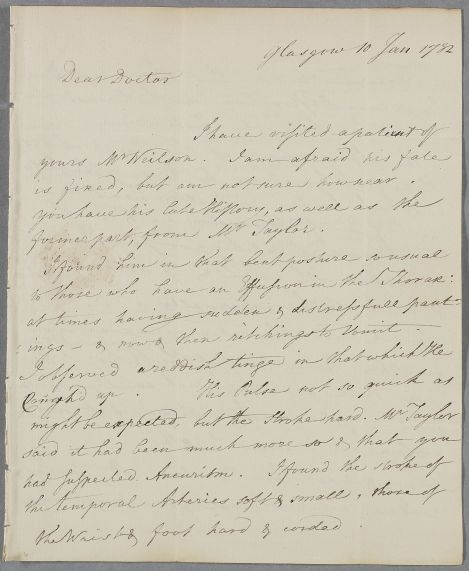 Glasgow 10 Jan 1782
Dear Doctor
I have visited a patient of
yours Mr Neilson. I am afraid his fate
is fixed, but am not sure how near.
you have his late History, as well as the
former part, from Mr Taylor.
I found him in that bent posture so usual
to those who have an Effusion in the Thorax:
at times having sudden & distressfull pant-
ings – & now & then retchings to vomit.
I observed a reddish tinge in that which he
Cough'd up. His Pulse not so quick as
might be expected, but the stroke hard. Mr Taylor
said it had been much more so & that you
had suspected Aneurism. I found the stroke of
the temporal Arteries soft & small, those of
the Wrist & foot hard & corded.